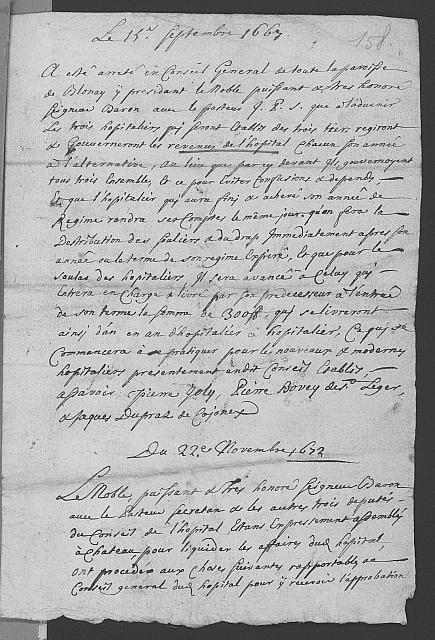 Le 15.e Septembre 1667
158.
A esté arreté en Conseil General de toute la paroisse
de Blonay ÿ presidant le Noble puissant & tres honoré
Seigneur Baron avec le pasteur que a l'advenir
Les trois hospitaliers qui seront establis des trois tiers, regiront
& Gouverneront les revenus de l'hopital Chacun son année
a l'alternative, au lieu que par cy devant Ils gouvernoyent
tous trois Ensemble, Et ce pour Eviter Confusions & depends,
Et que l'hospitalier qui aura fini & achevé son année de
Regime rendra ses Comptes le même jour qu'on fera la
Distribution des Souliers & du drap Immediatement apres son
année ou le terme de son regime Expiré, Et que pour le
soulas des hospitaliers Il sera avancé a Celuy qui
Entrera en Charge & livré par son predecesseur a l'entrée
de son terme la somme de 300 ff, qui se livreront
ainsi d'an en an d'hospitalier a hospitalier, Ce qui
Commencera a se pratiquer pour les nouveaux & modernes
hospitaliers presentement en dit Conseil Establis,
assavoir pierre Joly, Pierre Bovey de St. Leger,
& Jaques Dupraz de Cojonex
Du 22.e Novembre 1672
Le Noble, puissant & tres honoré Seigneur Baron
avec le pasteur Secretan & les autres trois deputés
du Conseil de l'hopital Etans Expressement assemblés
a Chateau, pour liquider les affaires dud. hopital,
ont procedé aux choses suivantes rapportables au
Conseil general dud. hopital pour ÿ recevoir l'approbation